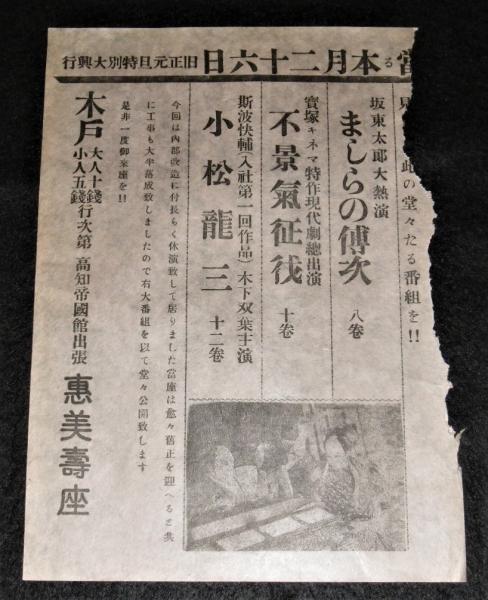 當る本月二十六日 旧正元旦特別大興行
此の堂々たる番組を!!
坂東太郎大熱演
ましらの傳次 八卷
寶塚キネマ特作現代劇總出演
不景氣征伐 十卷
斯波快輔(入社第一回作品)木下双葉主演
小松龍三 十二卷
今回は内部改造に付長らく休演致して居りました當座は愈々舊正を迎へると共
に工事も大半落成致しましたので右大番組を以て堂々公開致します
是非一度御來座を!!
木戸 大人十錢 小人五錢 行次第 高知帝國館出張 惠美壽座